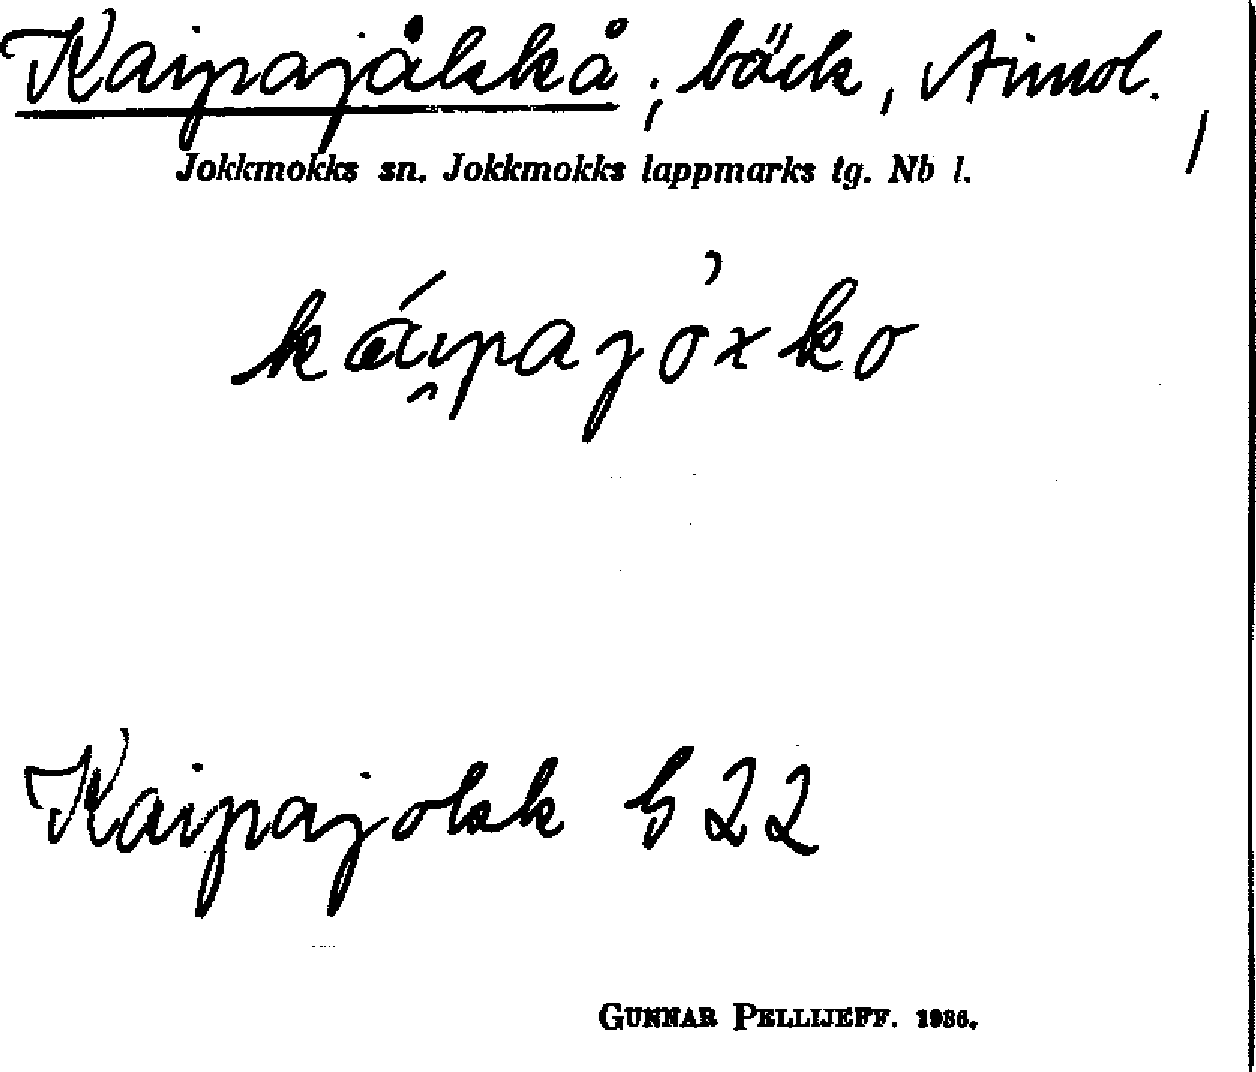 Kaipajåkkå, bäck,
Jokkmokks sn. Jokkmokks lappmarks tg. Nb l.
kái̯pajòxko
Kaipajokk G 22
GUNNAR PELLIJEFF. 1936.